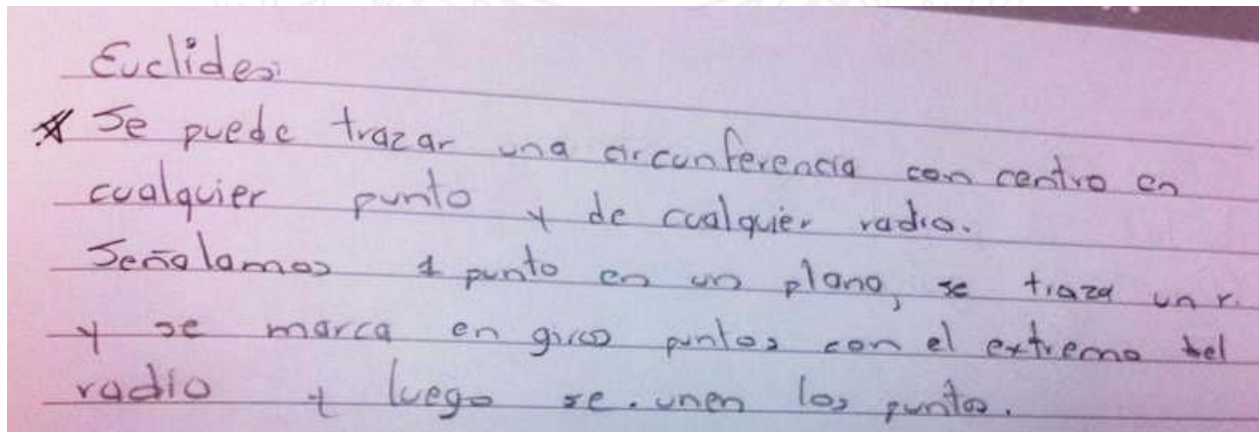 Euclides:
* Se puede trazar una circunferencia con centro en
cualquier punto y de cualquier radio.
Señalamos 1 punto en un plano, se traza un r.
y se marca en giros puntos con el extremo del
radio y luego se. unen los puntos.